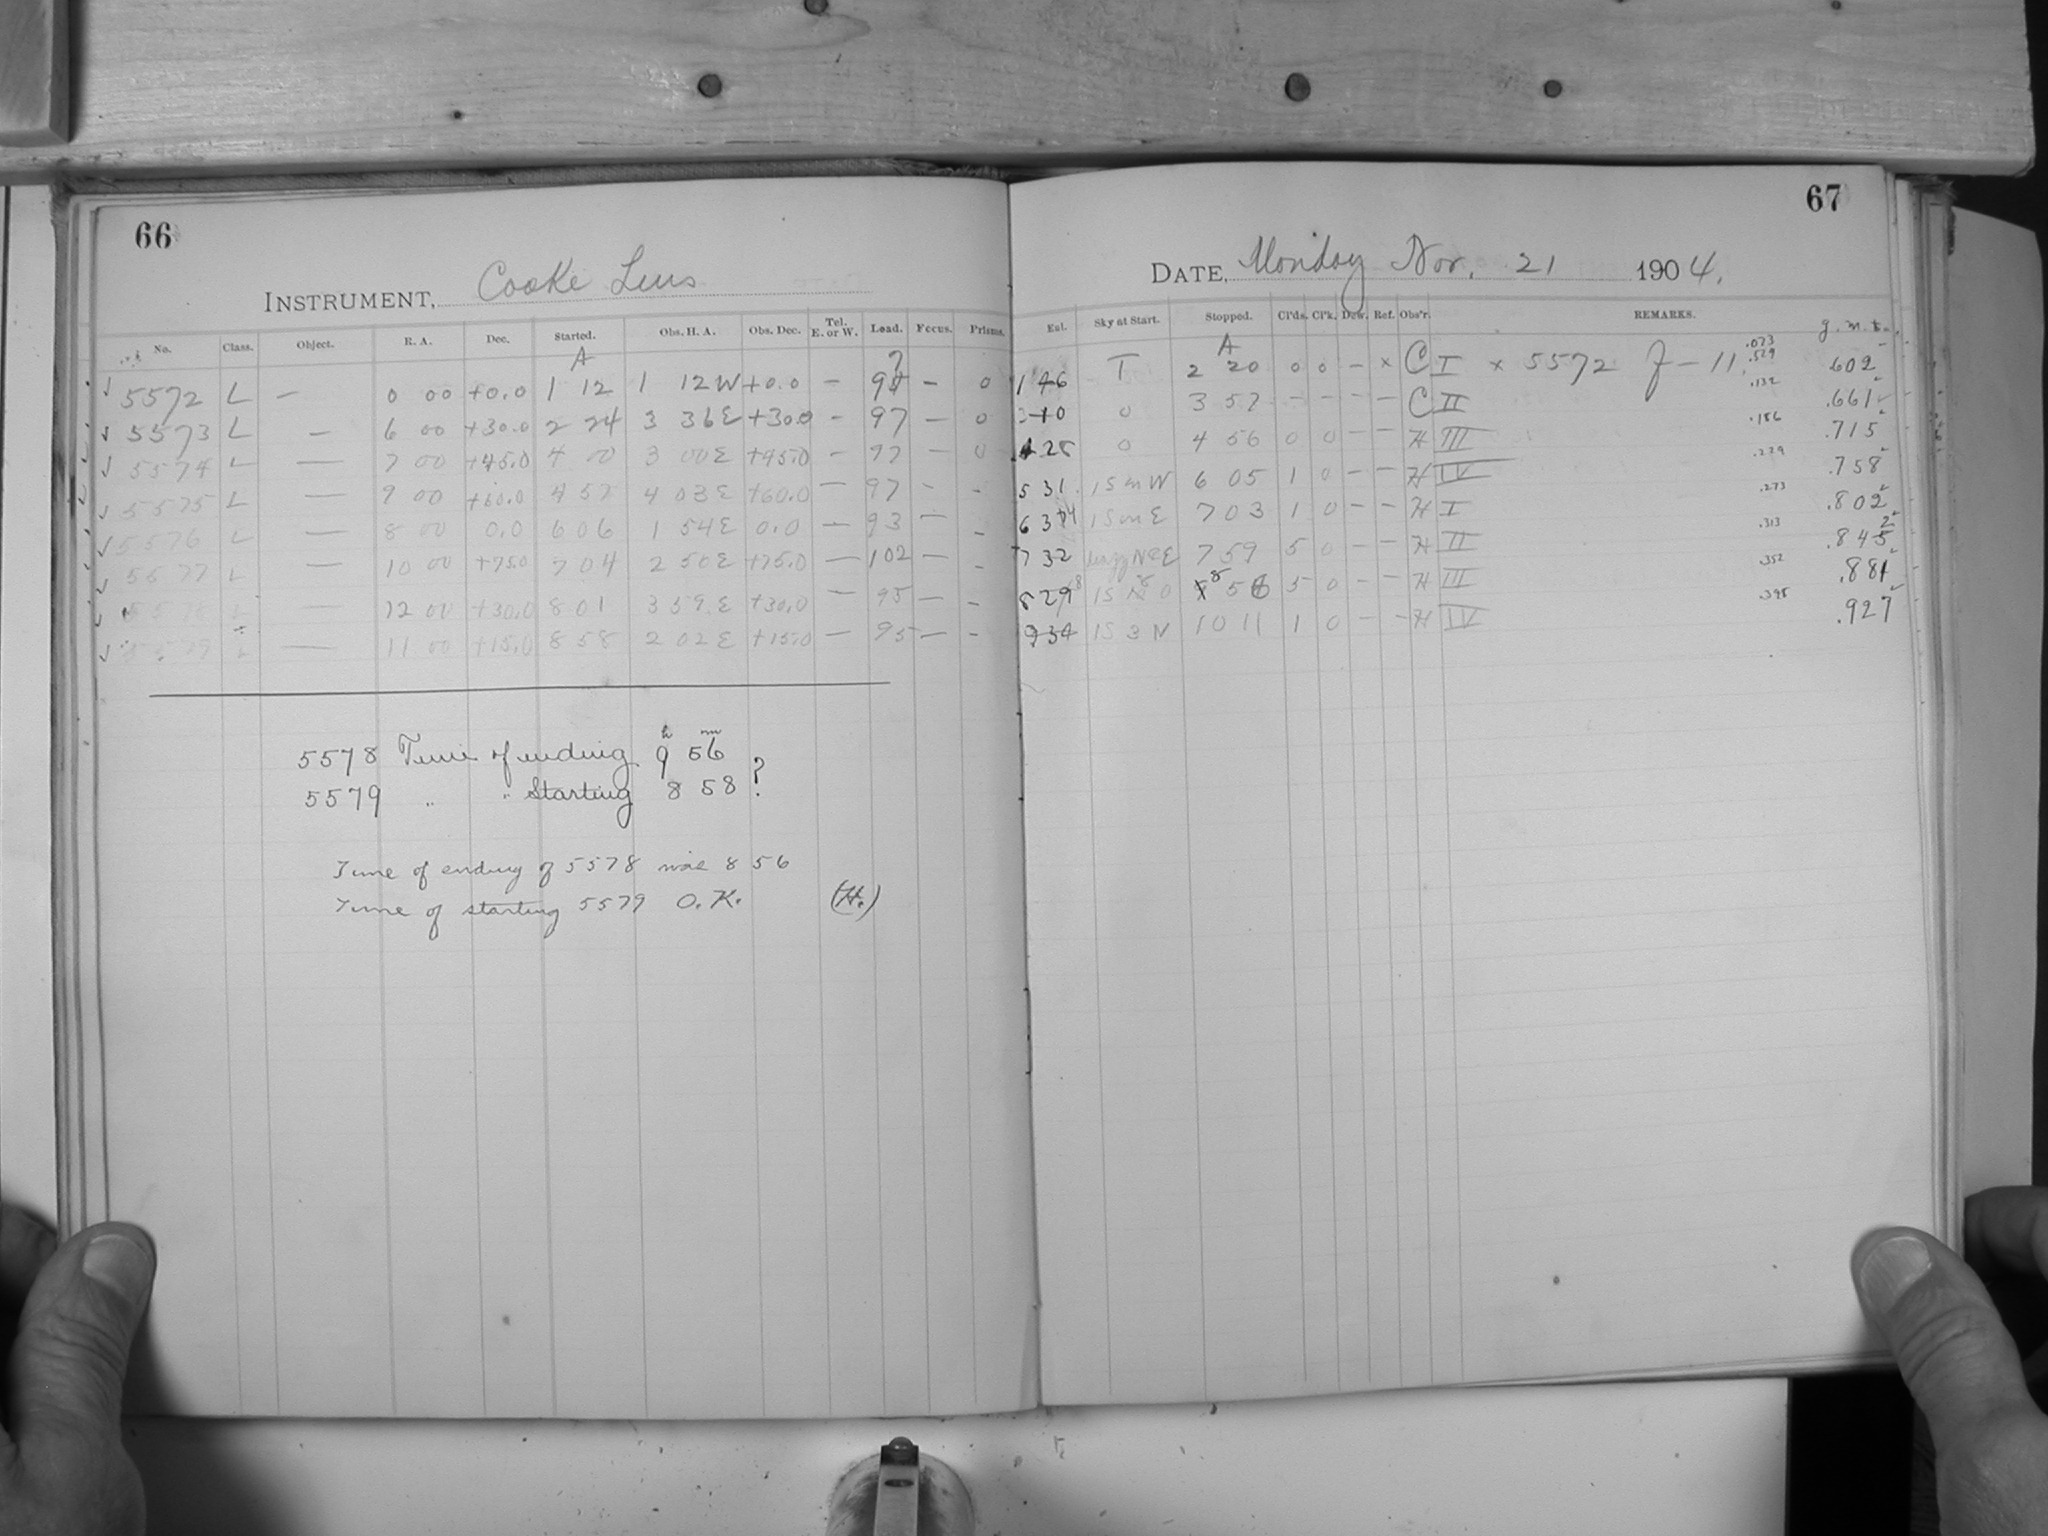 66
INSTRUMENT, Cooke Lens
No. Class. Object. R. A. Dec. Started. Obs. H. A. Obs. Dec. Tel. E. or W. Load. Focus. Prisms.
A ?
5572 L — 0 00 +0.0 1 12 1 12W +0.0 — — 0
5573 L — 6 00 +30.0 2 24 3 36E +30.0 - 97 — 0
5574 L — 7 00 +45.0 4 00 3 00E +45.0 — 97 — 0
5575 L — 9 00 +60.0 4 57 4 03E +60.0 — 97 - -
5576 L — 8 00 0.0 6 06 1 54E 0.0 — 93 — -
5577 L — 10 00 +75.0 7 04 2 50E +75.0 — 102 — -
5578 L — 12 00 +30.0 8 01 3 59E +30.0 — 95 — -
5579 L — 11 00 +15.0 8 58 2 02E +15.0 — 95 — -
5578 Time of ending 9h 56m
5579 " " Starting 8 58 ?
Time of ending of 5578 was 8 56
Time of starting 5579 O.K. (H.)
67
DATE, Monday Nov. 21 1904.
Ext. Sky at Start. Stopped. Cl'ds. Cl'k. Dew. Ref. Obs'r. REMARKS. g.m.t.
A
1 46 T 2 20 0 0 — × C I × 5572 J—11 .073 .529 .602
3 10 0 3 57 - - - - C II .132 .661
4 28 0 4 56 0 0 - - H III .186 .715
5 31 1S m W 6 05 1 0 - - H IV .229 .758
6 34 1S m E 7 03 1 0 - - H I .273 .802
7 32 7 59 5 0 - - H II .313 .842
8 29 8 56 5 0 - - H III .352 .881
9 34 1S 3 N 10 11 1 0 - - H IV .398 .927